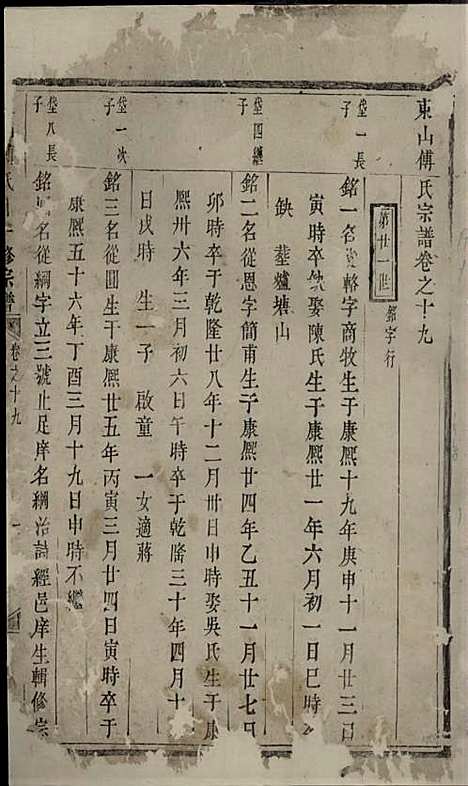 東山傅氏宗譜卷之十九
第廿一世
銘字行
岱一長子
銘一名 輅字商牧生于康熙十九年庚申十一月廿三日
寅時卒缺娶陳氏生于康熙廿一年六月初一日巳時
缺 葬爐塘山
岱四繼子
銘二名從恩字簡甫生于康熙廿四年乙丑十一月廿七日
卯時卒于乾隆廿八年十二月卅日申時娶吳氏生于康
熙卅六年三月初六日午時卒于乾隆三十年四月十
日戌時 生一子 啟童 一女適蔣
岱一次子
銘三名從圓生于康熙廿五年丙寅三月廿四日寅時卒于
康熙五十六年丁酉三月十九日申時不繼
岱八長子
銘 名從綱字立三號止足庠名綱治詩經邑庠生輯修宗
氏 修宗譜
卷之十九
一